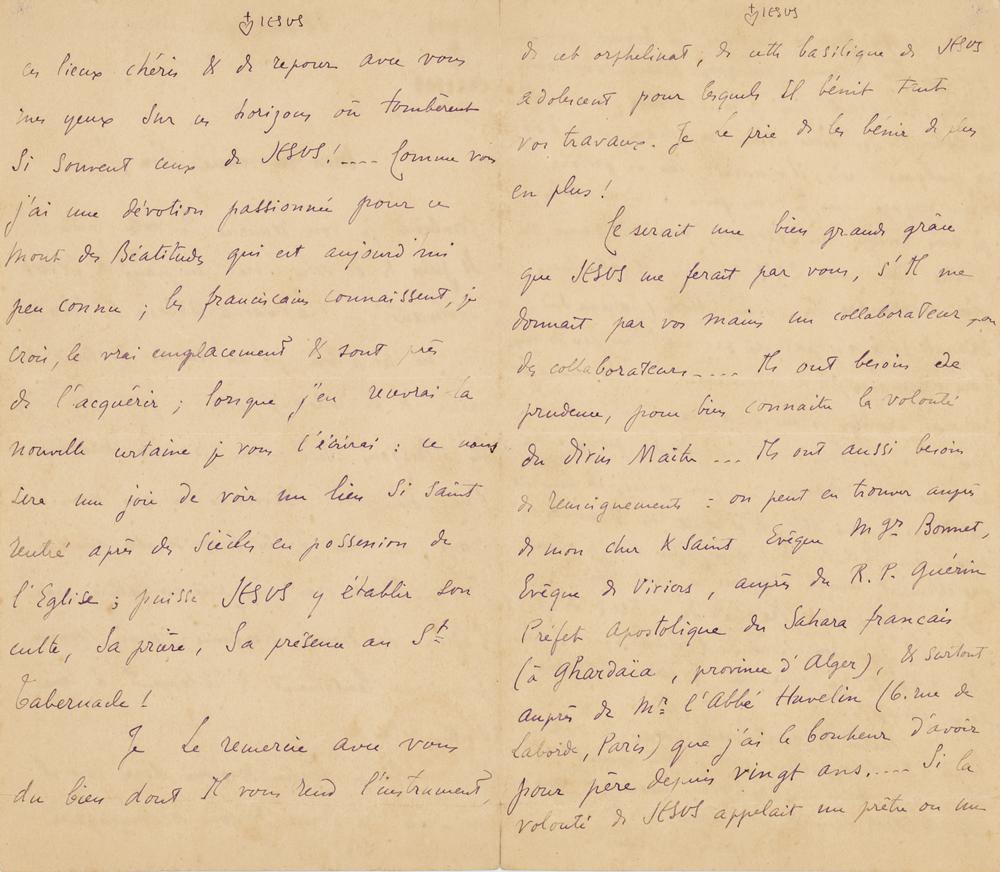 JESUS
ces lieux chéris & de reposer avec vous
mes yeux sur ces horizons où tombèrent
si souvent ceux de JESUS!.... Comme vous
j'ai une dévotion passionnée pour ce
Mont des Béatitudes qui est aujourd'hui
peu connu ; les franciscains connaissent, je
crois, le vrai emplacement & sont près
de l'acquérir ; lorsque j'en recevrai la
nouvelle certaine je vous l'écrirai : ce nous
sera une joie de voir un lieu si saint
rentré après des siècles en possession de
l'Eglise ; puisse JESUS y établir son
culte, Sa prière, Sa présence au St
Tabernacle !
Je Le remercie avec vous
du bien dont Il vous rend l'instrument,
JESUS
de cet orphelinat, de cette basilique de JESUS
adolescent pour lesquels Il bénit tant
vos travaux. Je Le prie de les bénir de plus
en plus !
Ce serait une bien grande grâce
que JESUS me ferait par vous, s'Il me
donnait par vos mains un collaborateur, ou
des collaborateurs.... Ils ont besoin de
prudence, pour bien connaître la volonté
du divin Maître ... Ils ont aussi besoin
de renseignements : on peut en trouver auprès
de mon cher & saint Evêque Mgr Bonnet,
Evêque de Viviers, auprès du R. P. Guérin
Préfet Apostolique du Sahara français
(à Ghardaïa, province d'Alger), & surtout
auprès de Mr l'Abbé Huvelin (6. rue de
Laborde, Paris) que j'ai le bonheur d'avoir
pour père depuis vingt ans..... Si la
volonté de JESUS appelait un prêtre ou un